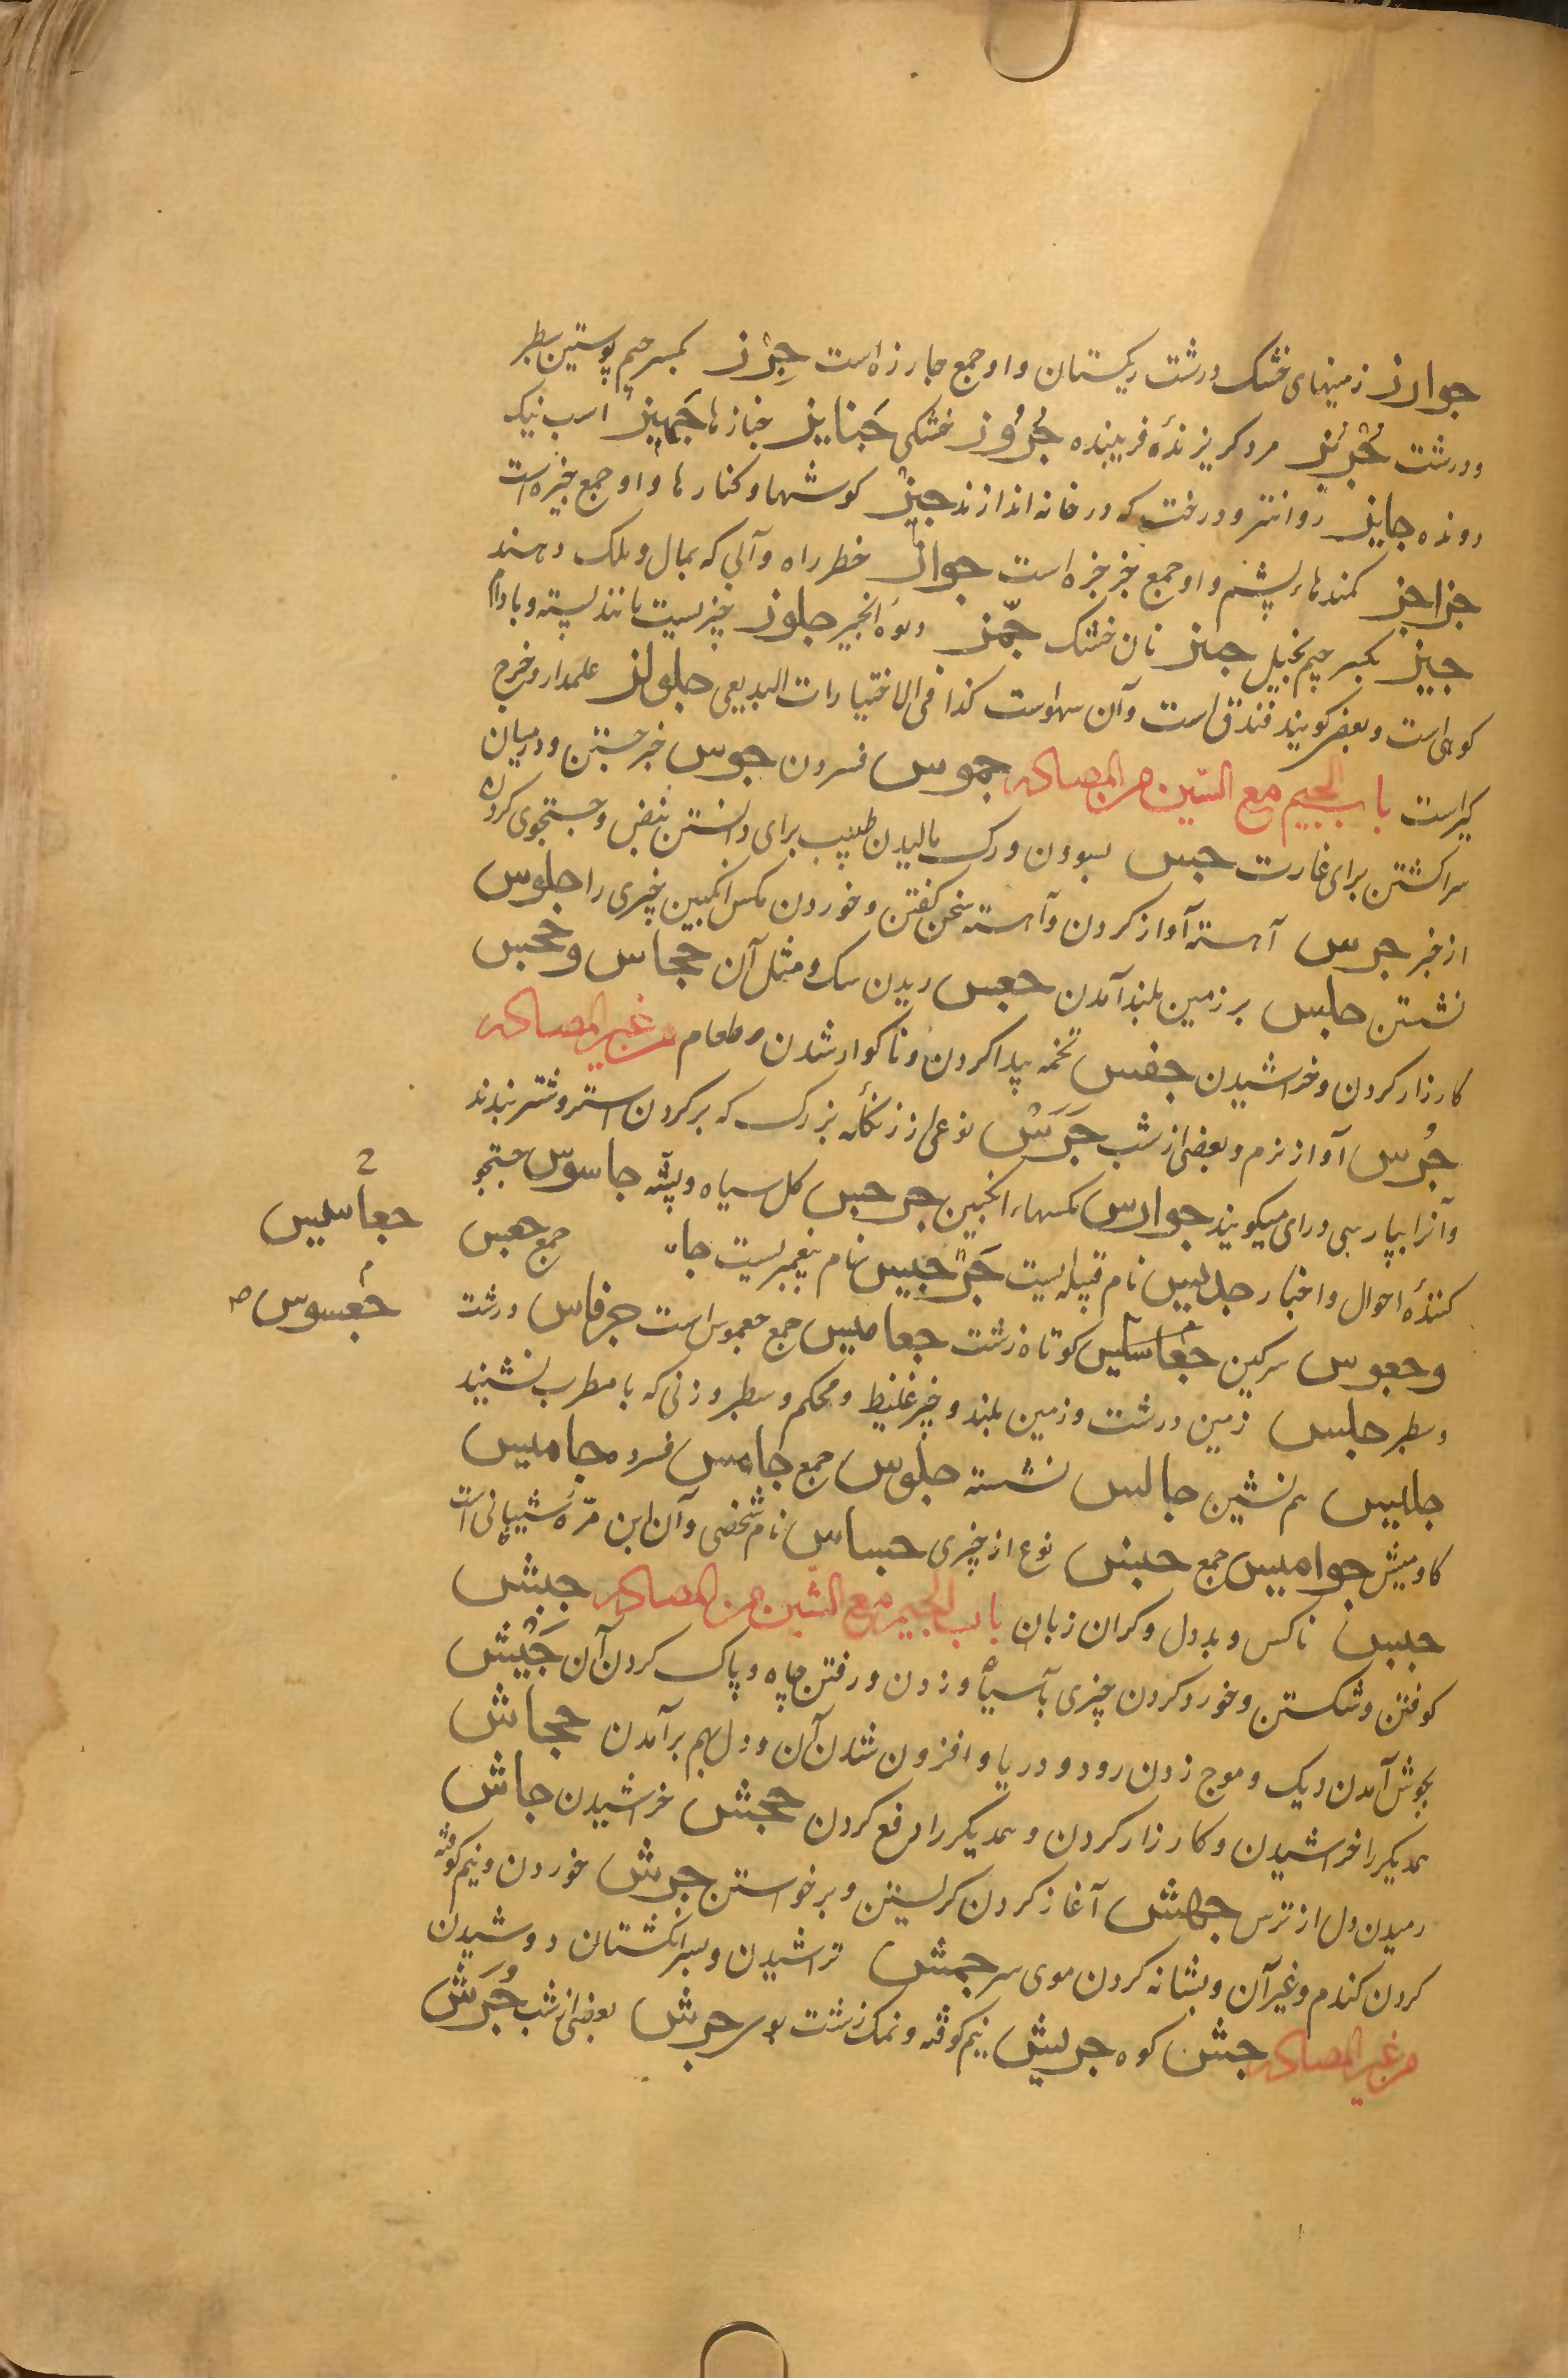 جوارز زمینهای خشک ودرشت ریکستان واو جمع جارزه است جِرْز بکسر جیم پوستین سطبر
ودرشت جُرْبُز مرد کریز نده فریبنده جُرُوز خشکی جَنایز جنازه ها جَهِیز اسب نیک
رونده جایز روانتر ودرخت که در خانه اندازند جیز کوشها وکنار ها واو جمع جیزه است
جزاجز کمندهاء پشم واو جمع جزجزه است جواز خطر راه وآبی که بمال وملک دهند
جبز بکسر جیم بخیل جبیز نان خشک جُمَّز ومیوه انجیر جلوز چیزیست مانند پسته وبادام
کوهی است وبعضی کویند فندق است وآن سهوست کذا فی الاختیارات البدیعی جلواز علمدار وخرج
کیراست باب الجیم مع السین من المصادر جموس فسردن جوس خبر جستن ودرمیان
سرا کشتن برای غارت جس بسودن ورک مالیدن طبیب برای دانستن نبض وجستجوی کردن
از خبر جرس آهسته آواز کردن وآهسته سخن کفتن وخوردن مکس انکبین چیزی را جلوس
نشستن جلس بر زمین بلند آمدن جعس ریدن سک ومثل آن جحاس وجحس
کارزار کردن وخراشیدن جفس تخمه پیدا کردن وناکوار شدن طعام من غیر المصادر
جُرس آواز نرم وبعضی از شب جَرَس نوعی از زنکله بزرک که بر کردن استر وشتر بندند
وآنرا بپارسی درای میکویند جوارس مکسهاء انکبین جرجس کل سیاه وپشه جاسوس جستجو
کنندهٔ احوال واخبار جدیس نام قبیله یست جَرْجیس نام پیغمبریست جمع جعس
وجعوس سرکین جعاسیس کوتاه زشت جعامیس جمع جعموس است جرفاس درشت
وسطبر جلس زمین درشت وزمین بلند وچیز غلیظ ومحکم وسطبر وزنی که با مطرب نشنید
جلیس هم نشین جالس نشسته جلوس جمع جامس فسرده جامیس
کاومیش جوامیس جمع جنس نوع از چیزی جساس نام شخصی وآن ابن مرّه شیبانی است
جبس ناکس وبددل وکران زبان باب الجیم مع الشین من المصادر جش
کوفتن وشکستن وخورد کردن چیزی بآسیا وزدن ورفتن چاه وپاک کردن آن جَیْش
بجوش آمدن دیک وموج زدن رود ودریا وافزون شدن آن ودل بهم برآمدن جحاش
همدیکر را خراشیدن وکارزار کردن وهمدیکر را دفع کردن جحش خراشیدن جاش
رمیدن دل از ترس جهش آغاز کردن کریستن وبرخواستن جرش خوردن ونیم کوفته
کردن کندم وغیر آن وبشانه کردن موی سر جمش تراشیدن وبسر انکشتان دوشیدن
من غیر المصادر جش کوه جریش نیم کوفته ونمک زشت جرش بعضی از شب جُرَش
جعاسیس
جعسوس